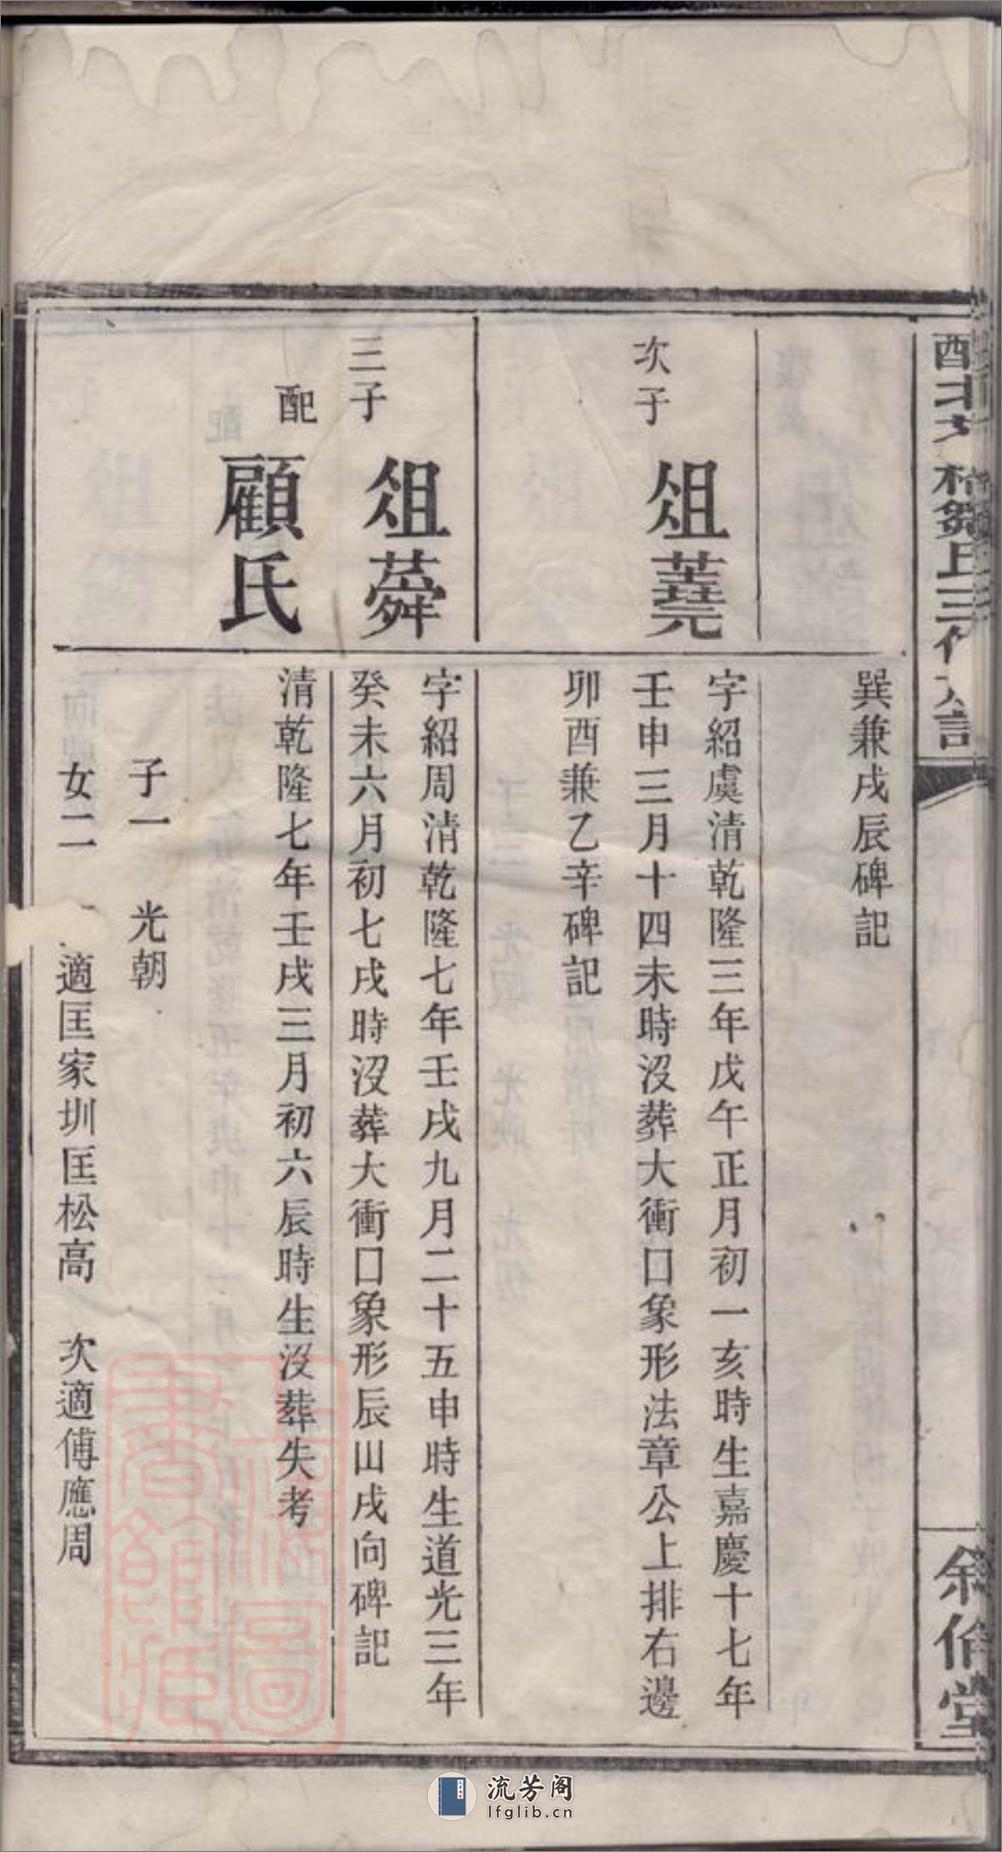 巽兼戌辰碑記
次子
俎蕘
字紹虞清乾隆三年戊午正月初一亥時生嘉慶十七年
壬申三月十四未時沒葬大衝口象形法章公上排右邊
卯酉兼乙辛碑記
三子
俎蕣
字紹周清乾隆七年壬戌九月二十五申時生道光三年
癸未六月初七戌時沒葬大衝口象形辰山戌向碑記
配
顧氏
清乾隆七年壬戌三月初六辰時生沒葬失考
子一 光朝
女二 適匡家圳匡松高 次適傅應周
敘倫堂
流芳阁
lfglib.cn